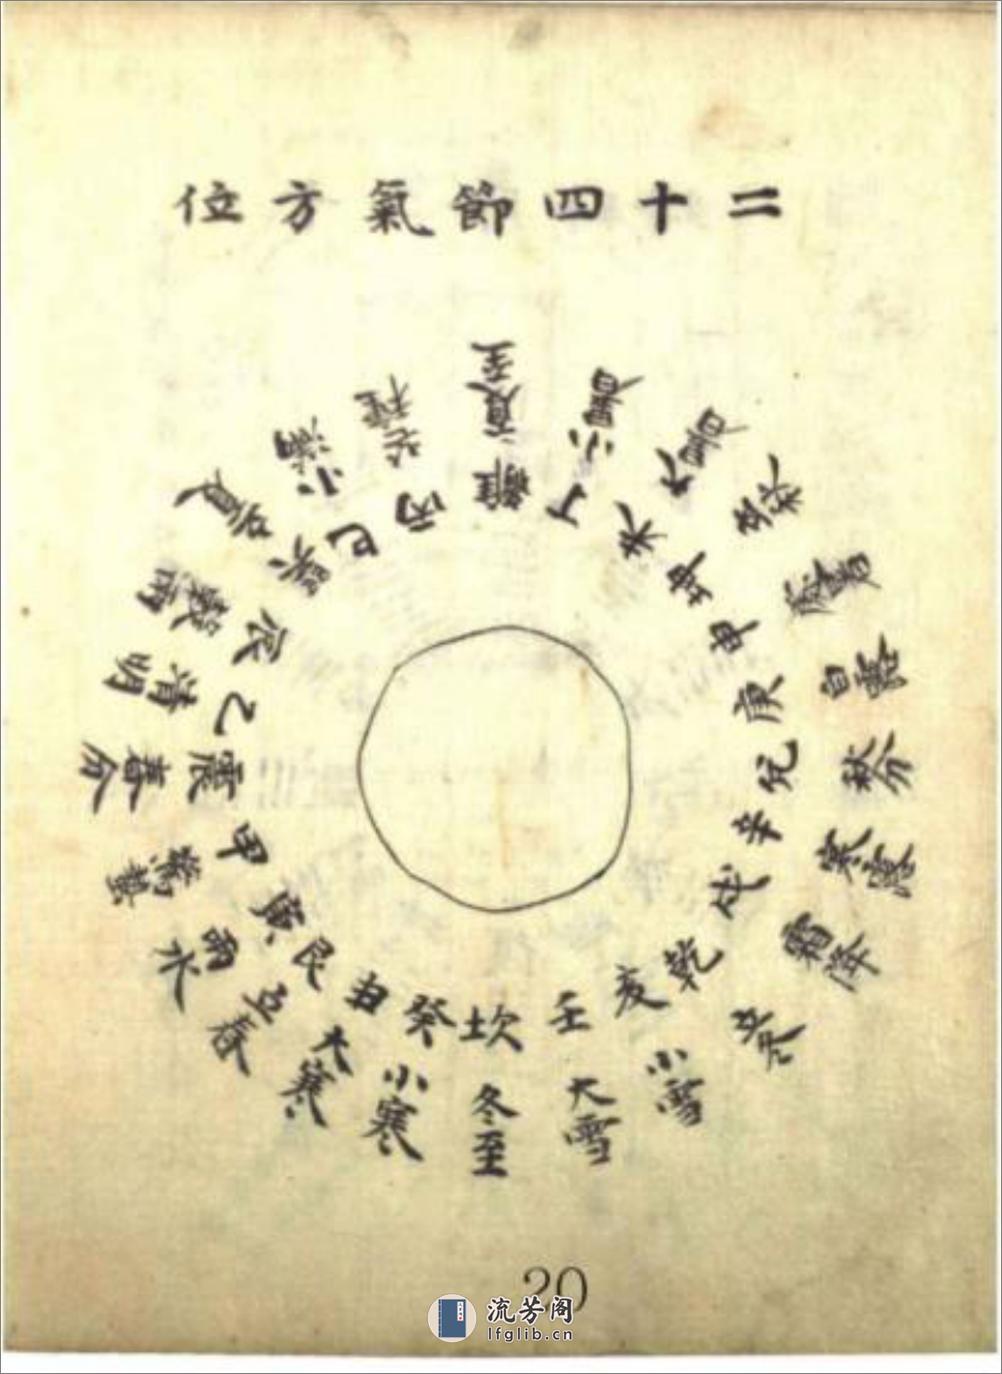 二十四節氣方位
離 夏至
丁 小暑
未 大暑
坤 立秋
申 處暑
庚 白露
兌 秋分
辛 寒露
戌 霜降
乾 立冬
亥 小雪
壬 大雪
坎 冬至
癸 小寒
丑 大寒
艮 立春
寅 雨水
甲 驚蟄
震 春分
乙 清明
辰 穀雨
巽 立夏
巳 小滿
丙 芒種
20
流芳阁
lfglib.cn